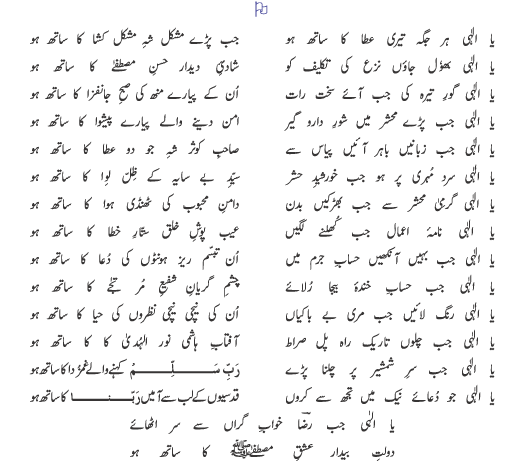 یا الٰہی ہر جگہ تیری عطا کا ساتھ ہو جب پڑے مشکل شہِ مشکل کشا کا ساتھ ہو
یا الٰہی بھول جاؤں نزع کی تکلیف کو شادیِ دیدارِ حسنِ مصطفےٰ کا ساتھ ہو
یا الٰہی گورِ تیرہ کی جب آئے سخت رات اُن کے پیارے منھ کی صبحِ جانفزا کا ساتھ ہو
یا الٰہی جب پڑے محشر میں شورِ دارو گیر امن دینے والے پیارے پیشوا کا ساتھ ہو
یا الٰہی جب زبانیں باہر آئیں پیاس سے صاحبِ کوثر شہِ جود و عطا کا ساتھ ہو
یا الٰہی سرد مُہری پر ہو جب خورشیدِ حشر سیّدِ بے سایہ کے ظلِّ لِوا کا ساتھ ہو
یا الٰہی گرمیِ محشر سے جب بھڑکیں بدن دامنِ محبوب کی ٹھنڈی ہوا کا ساتھ ہو
یا الٰہی نامۂ اعمال جب کُھلنے لگیں عیب پوشِ خلق ستّارِ خطا کا ساتھ ہو
یا الٰہی جب بہیں آنکھیں حسابِ جرم میں اُن تبسّم ریز ہونٹوں کی دُعا کا ساتھ ہو
یا الٰہی جب حسابِ خندۂ بیجا رُلائے چشمِ گریانِ شفیعِ مُرتجٰے کا ساتھ ہو
یا الٰہی رنگ لائیں جب مری بے باکیاں اُن کی نیچی نیچی نظروں کی حیا کا ساتھ ہو
یا الٰہی جب چلوں تاریک راہِ پل صراط آفتابِ ہاشمی نور الہُدیٰ کا ساتھ ہو
یا الٰہی جب سرِ شمشیر پر چلنا پڑے رَبِّ سَلِّمْ کہنے والے غمزُدا کا ساتھ ہو
یا الٰہی جو دُعائے نیک میں تجھ سے کروں قدسیوں کے لب سے آمیں رَبَّنَا کا ساتھ ہو
یا الٰہی جب رضؔا خوابِ گراں سے سر اٹھائے
دولتِ بیدار عشقِ مصطفےٰ ﷺ کا ساتھ ہو